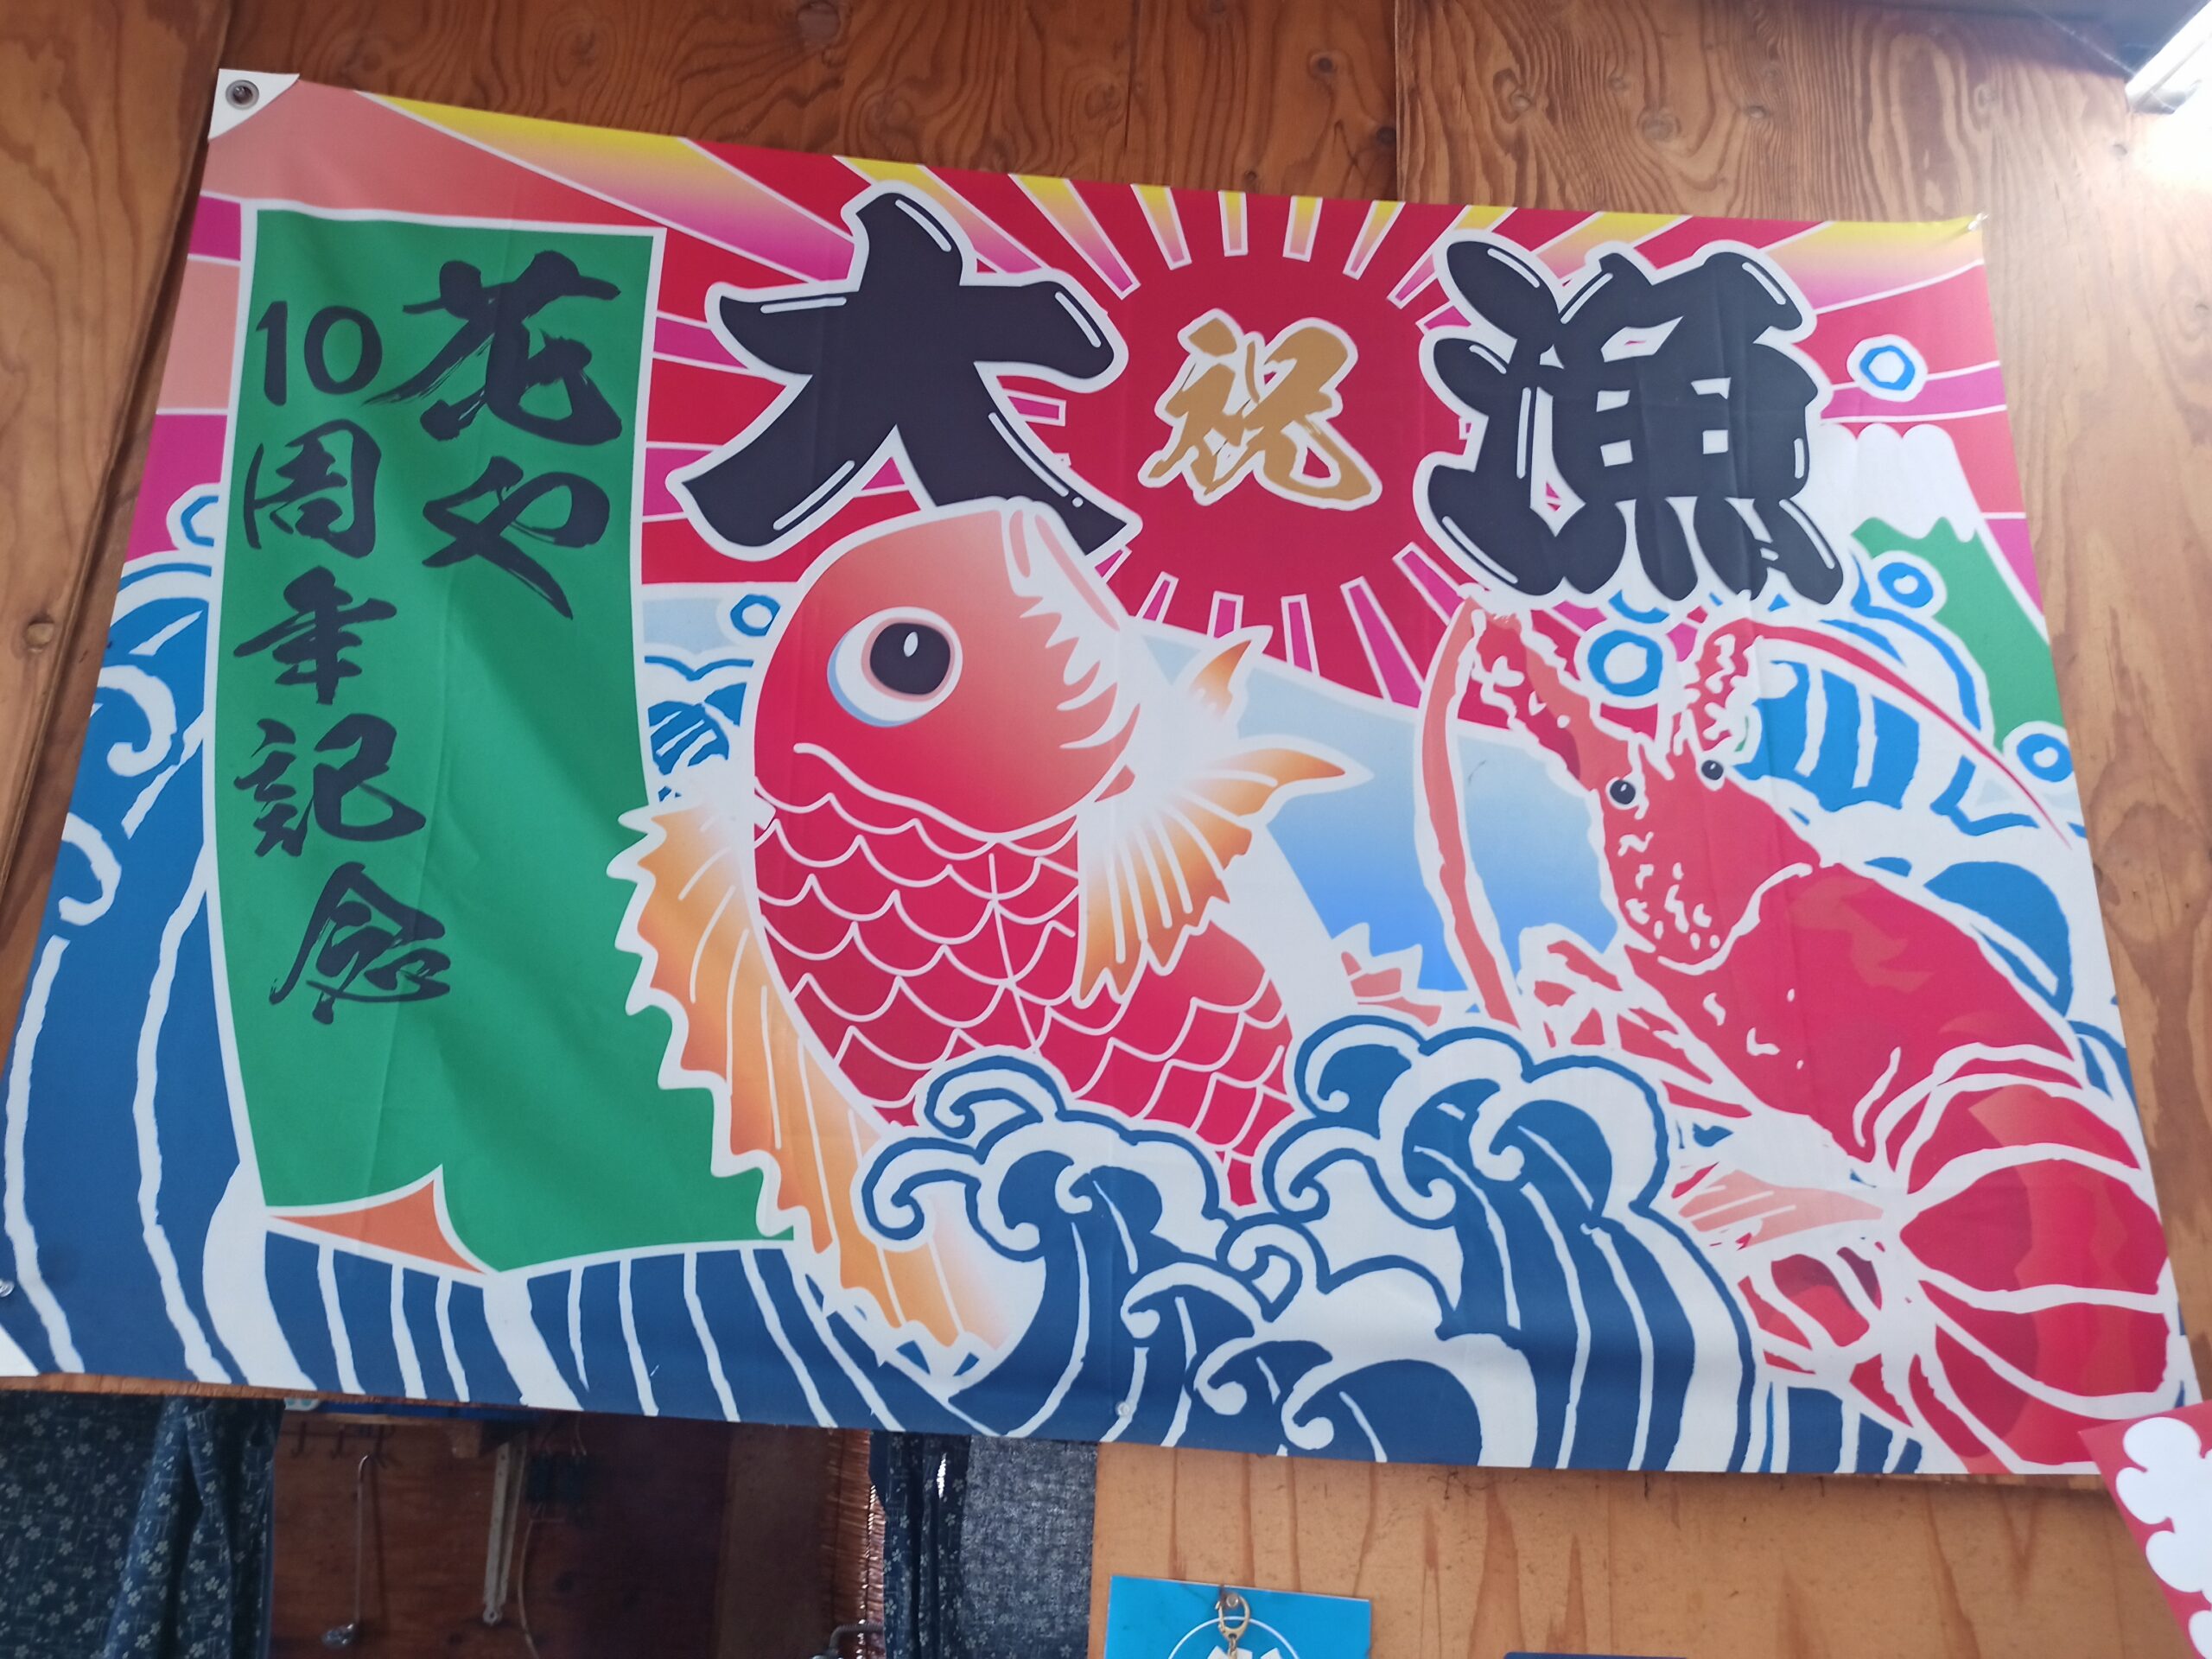 大漁
祝
花や
10周年記念